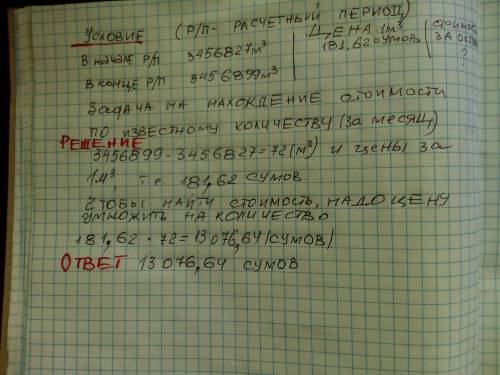 УСЛОВИЕ (Р/П- РАСЧЕТНЫЙ ПЕРИОД)
В НАЧАЛЕ Р/П 3456827 м³ ЦЕНА 1м³ СТОИМОСТЬ
В КОНЦЕ Р/П 3456899 м³ 181,62 СУМОВ ЗА
?
ЗАДАЧА НА НАХОЖДЕНИЕ СТОИМОСТИ
ПО ИЗВЕСТНОМУ КОЛИЧЕСТВУ (ЗА МЕСЯЦ)
РЕШЕНИЕ
3456899 - 3456827 = 72 (м³) И ЦЕНЫ ЗА
1м³, т.е. 181,62 СУМОВ.
ЧТОБЫ НАЙТИ СТОИМОСТЬ, НАДО ЦЕНУ
УМНОЖИТЬ НА КОЛИЧЕСТВО
181,62 · 72 = 13076,64 (СУМОВ)
ОТВЕТ 13076,64 СУМОВ